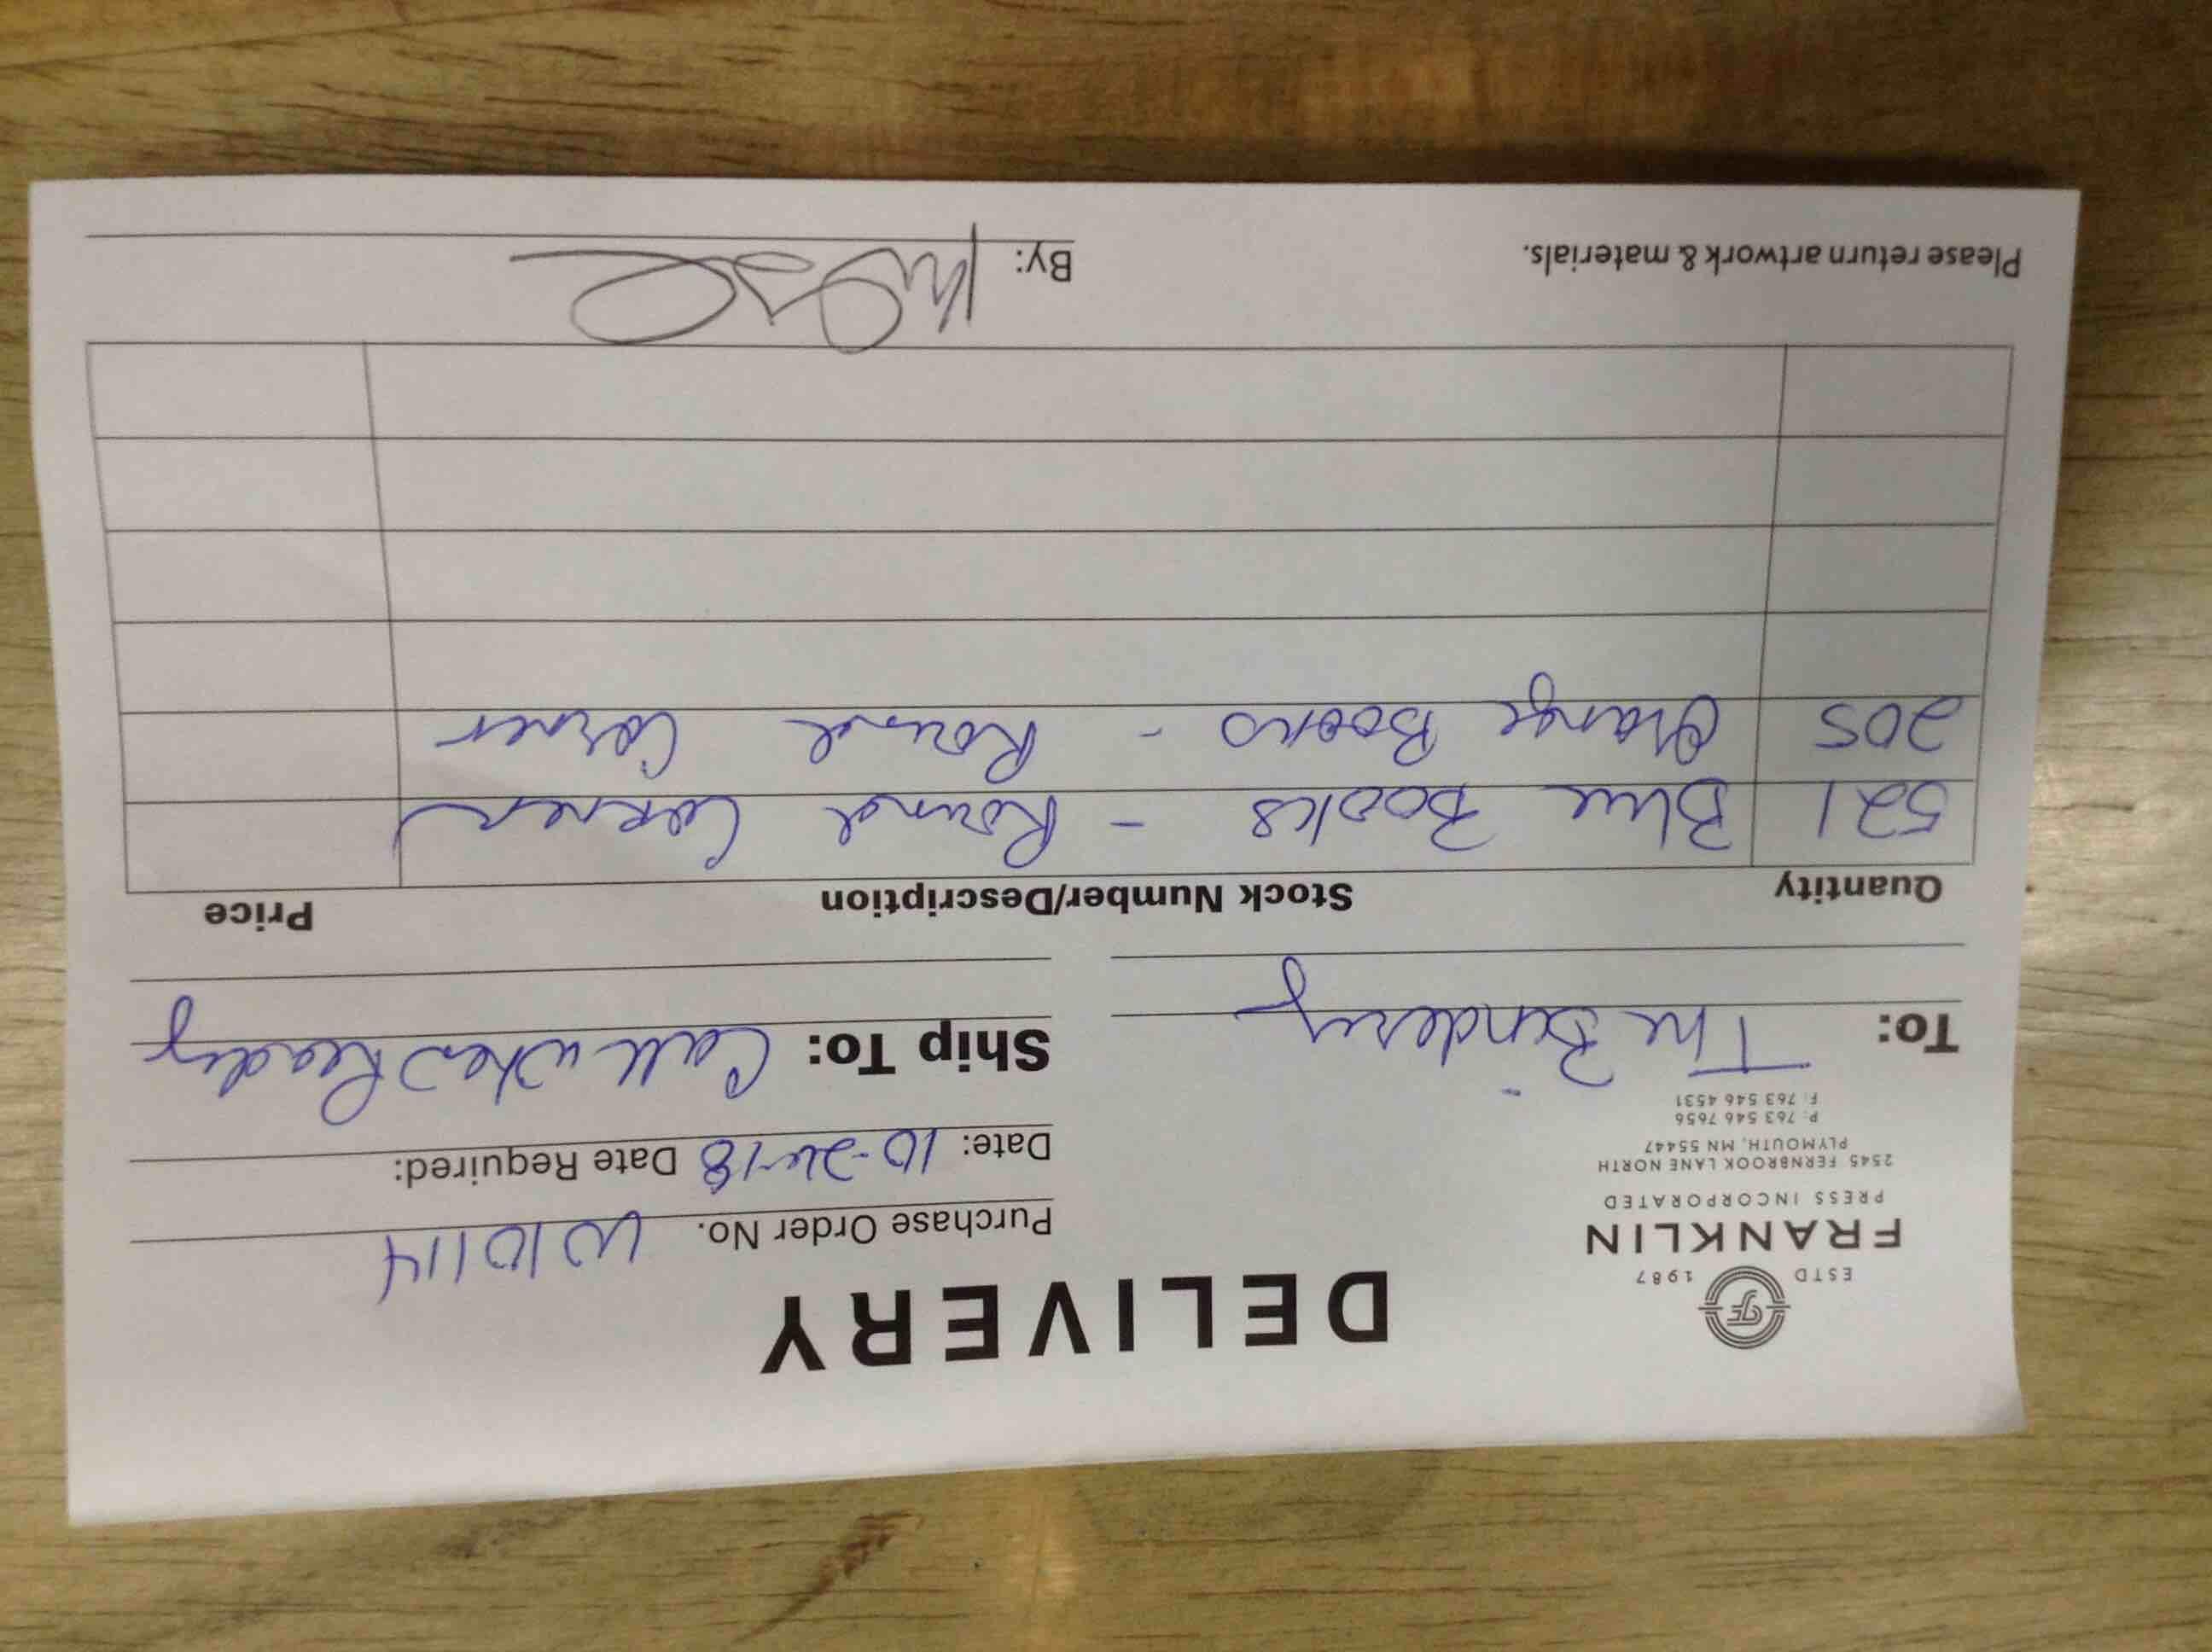 DELIVERY
ESTD 1987
FRANKLIN
PRESS INCORPORATED
2545 FERNBROOK LANE NORTH
PLYMOUTH, MN 55447
P: 763 546 7656
F: 763 546 4531
Purchase Order No. W10114
Date: 10-26-18 Date Required:
To: The Bindery
Ship To: Call when Ready
Quantity Stock Number/Description Price
521 Blue Books - Round Corner
205 Orange Books - Round Corner
Please return artwork & materials.
By: